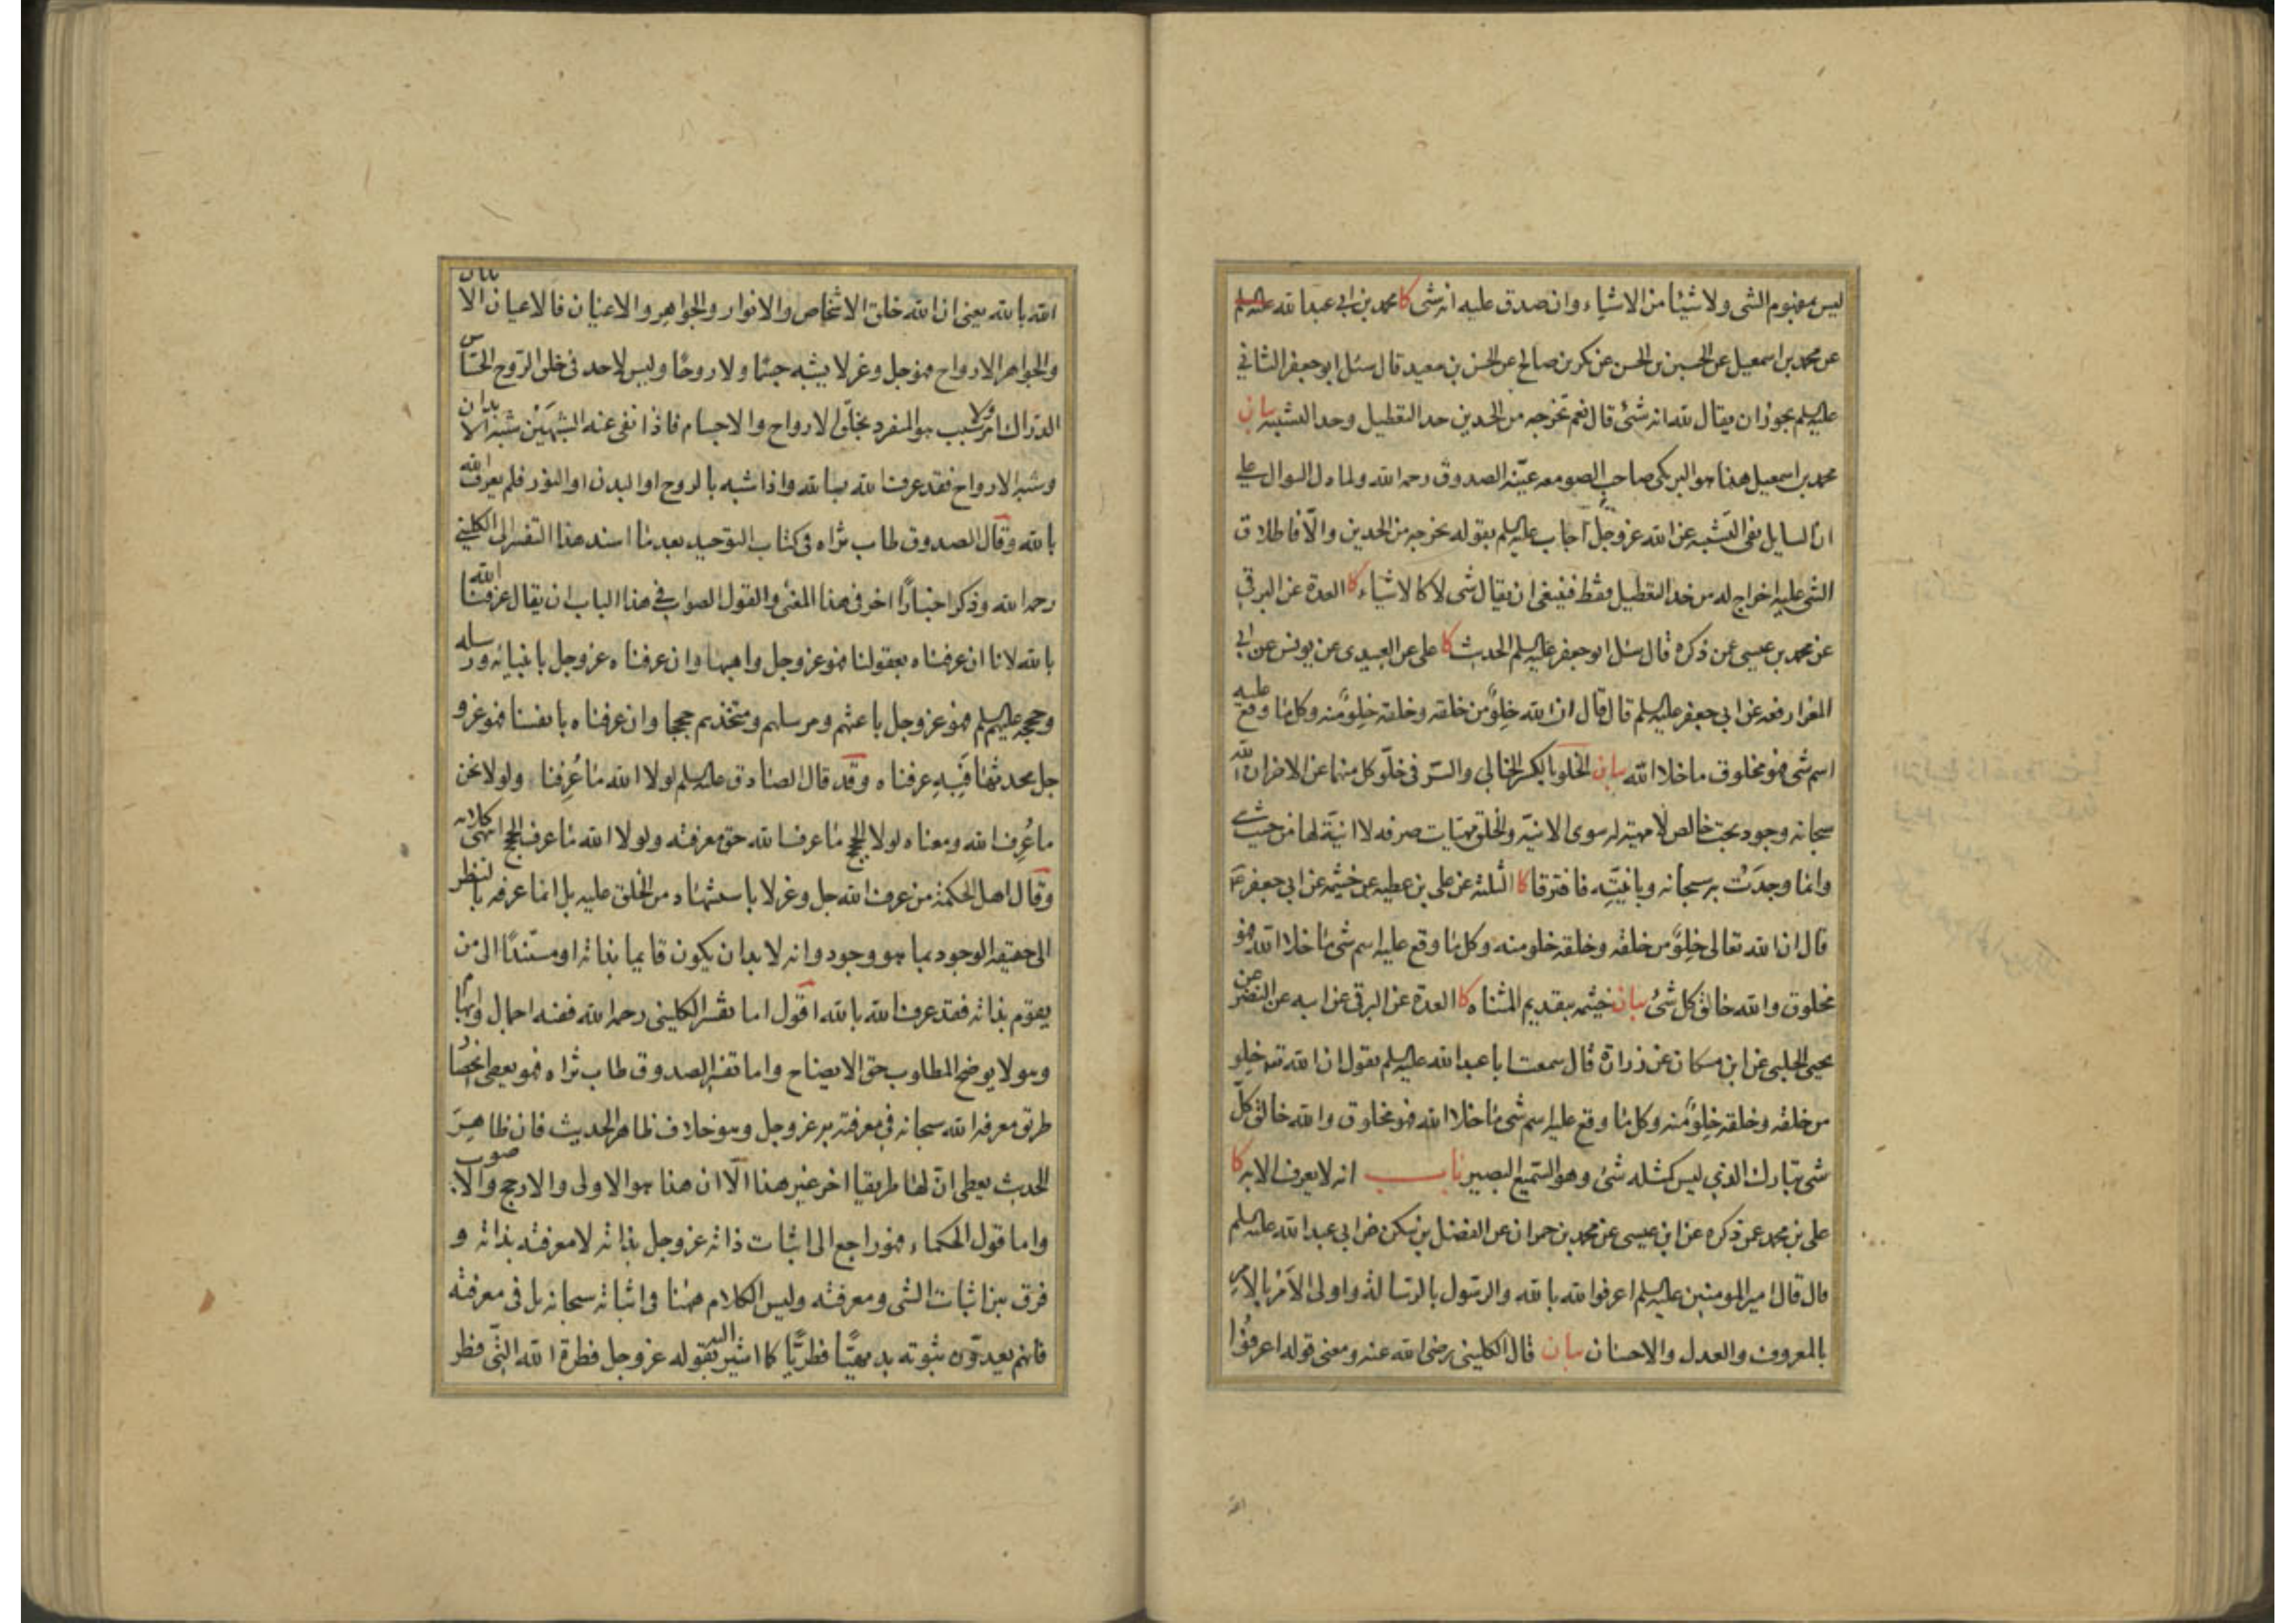 ليس مفهوم الشى ولا شيئا من الاشياء وان صدق عليه انه شى كا محمد بن ابى عبدالله
عن محمد بن اسمعيل عن الحسين بن الحسن عن بكر بن صالح عن الحسن بن سعيد قال سئل ابو جعفر الثانى
عليه السلم يجوز ان يقال لله انه شئ قال نعم تخرجه من الحدين حد التعطيل وحد التشبيه بيان
محمد بن اسمعيل هذا هو البرمكى صاحب الصومعه عيّنه الصدوق رحمه الله ولما دل السوال على
ان السايل نفى التشبيه عن الله عزوجل اجاب عليه السلم بقوله تخرجه من الحدين والّا فاطلاق
الشى عليه اخراج له من حد التعطيل فقط فينبغى ان يقال شى لا كالاشياء كا العدة عن البرقى
عن محمد بن عيسى عمن ذكره قال سئل ابو جعفر عليه السلم الحديث كا على عن العبيدى عن يونس عن ابى
المغرا رفعه عن ابى جعفر عليه السلم قال قال ان الله خِلوٌ من خلقه وخلقه خِلوٌ منه وكل ما وقع عليه
اسم شى فهو مخلوق ما خلا الله بيان الخلو بالكسر الخالى والسّر فى خلوّ كل منهما عن الاخر ان الله
سبحانه وجود بحت خالص لا مهية له سوى الانيّة والخلق مهيات صرفه لا انيّة لها من حيث هى
وانما وجدَتْ به سبحانه وبانيّته فافترقا كا الثلثة عن على بن عطيه عن خيثمه عن ابى جعفر ع
قال ان الله تعالى خِلوٌ من خلقه وخلقه خلو منه وكل ما وقع عليه اسم شى ما خلا الله فهو
مخلوق والله خالق كل شئ بيان خيثمه بتقديم المثناه كا العدة عن البرقى عن ابيه عن النضر عن
يحيى الحلبى عن ابن مسكان عن زرارة قال سمعت ابا عبدالله عليه السلم يقول ان الله خلو
من خلقه وخلقه خِلوٌ منه وكل ما وقع عليه اسم شى ما خلا الله فهو مخلوق والله خالق كلّ
شى تبارك الذى ليس كمثله شئ وهو السّميع البصير باب انه لا يعرف الا به كا
على بن محمد عمن ذكره عن ابن عيسى عن محمد بن حمران عن الفضل بن سكن عن ابى عبدالله عليه السلم
قال قال امير المومنين عليه السلم اعرفوا الله بالله والرسول بالرسالة واولى الامر بالامر
بالمعروف والعدل والاحسان بيان قال الكلينى رضى الله عنه ومعنى قوله اعرفوا
الله
الله بالله يعنى ان الله خلق الاشخاص والانوار والجواهر والاعيان فالاعيان الابدان
والجواهر الارواح فهو جل وعز لا يشبه جسمًا ولا روحًا وليس لاحد فى خلق الرّوح الحسّاس
الدرّاك امر ولا سبب هو المنفرد بخلق الارواح والاجسام فاذا نفى عنه الشبهَيْن شبه الابدان
وشبه الارواح فقد عرف الله بالله واذا شبه بالروح او البدن او النور فلم يعرف الله
بالله وقال الصدوق طاب ثراه فى كتاب التوحيد بعد ما اسند هذا التفسير الى الكلينى
رحمه الله وذكر اخبارًا اخر فى هذا المعنى والقول الصواب فى هذا الباب ان يقال عرفنا الله
بالله لانا ان عرفناه بعقولنا فهو عزوجل واهبها وان عرفناه عزوجل بانبيائه ورسله
وحججه عليهم السلم فهو عزوجل باعثهم ومرسلهم ومتخذهم حججا وان عرفناه بانفسنا فهو عز و
جل محدثها فَبِهِ عرفناه وقد قال الصادق عليه السلم لولا الله ما عُرِفنا ولولا نحن
ما عُرِف الله ومعناه لولا الحجج ما عرف الله حق معرفته ولولا الله ما عرف الحجج انتهى كلامه
وقال اهل الحكمة من عرف الله جل وعز لا باستشهاد من الخلق عليه بل انما عرفه بالنظر
الى حقيقه الوجود بما هو وجود وانه لا بد ان يكون قايما بذاته او مستندًا الى من
يقوم بذاته فقد عرف الله بالله اقول اما تفسير الكلينى رحمه الله ففيه اجمال وابهام
وهو لا يوضح المطلوب حق الايضاح واما تفسير الصدوق طاب ثراه فهو يعطى انحصار
طرق معرفه الله سبحانه فى معرفته به عزوجل وهو خلاف ظاهر الحديث فان ظاهِرَ
الحديث يعطى انّ لها طريقا اخر غير هذا الّا ان هذا هو الاولى والارجح والاصوب
واما قول الحكماء فهو راجع الى اثبات ذاته عزوجل بذاته لا معرفته بذاته و
فرق بين اثبات الشى ومعرفته وليس الكلام ههنا فى اثباته سبحانه بل فى معرفته
فانهم يعدّون ثبوته بديهيًّا فطريًّا كما اشير اليه بقوله عزوجل فطرة الله الّتى فطر